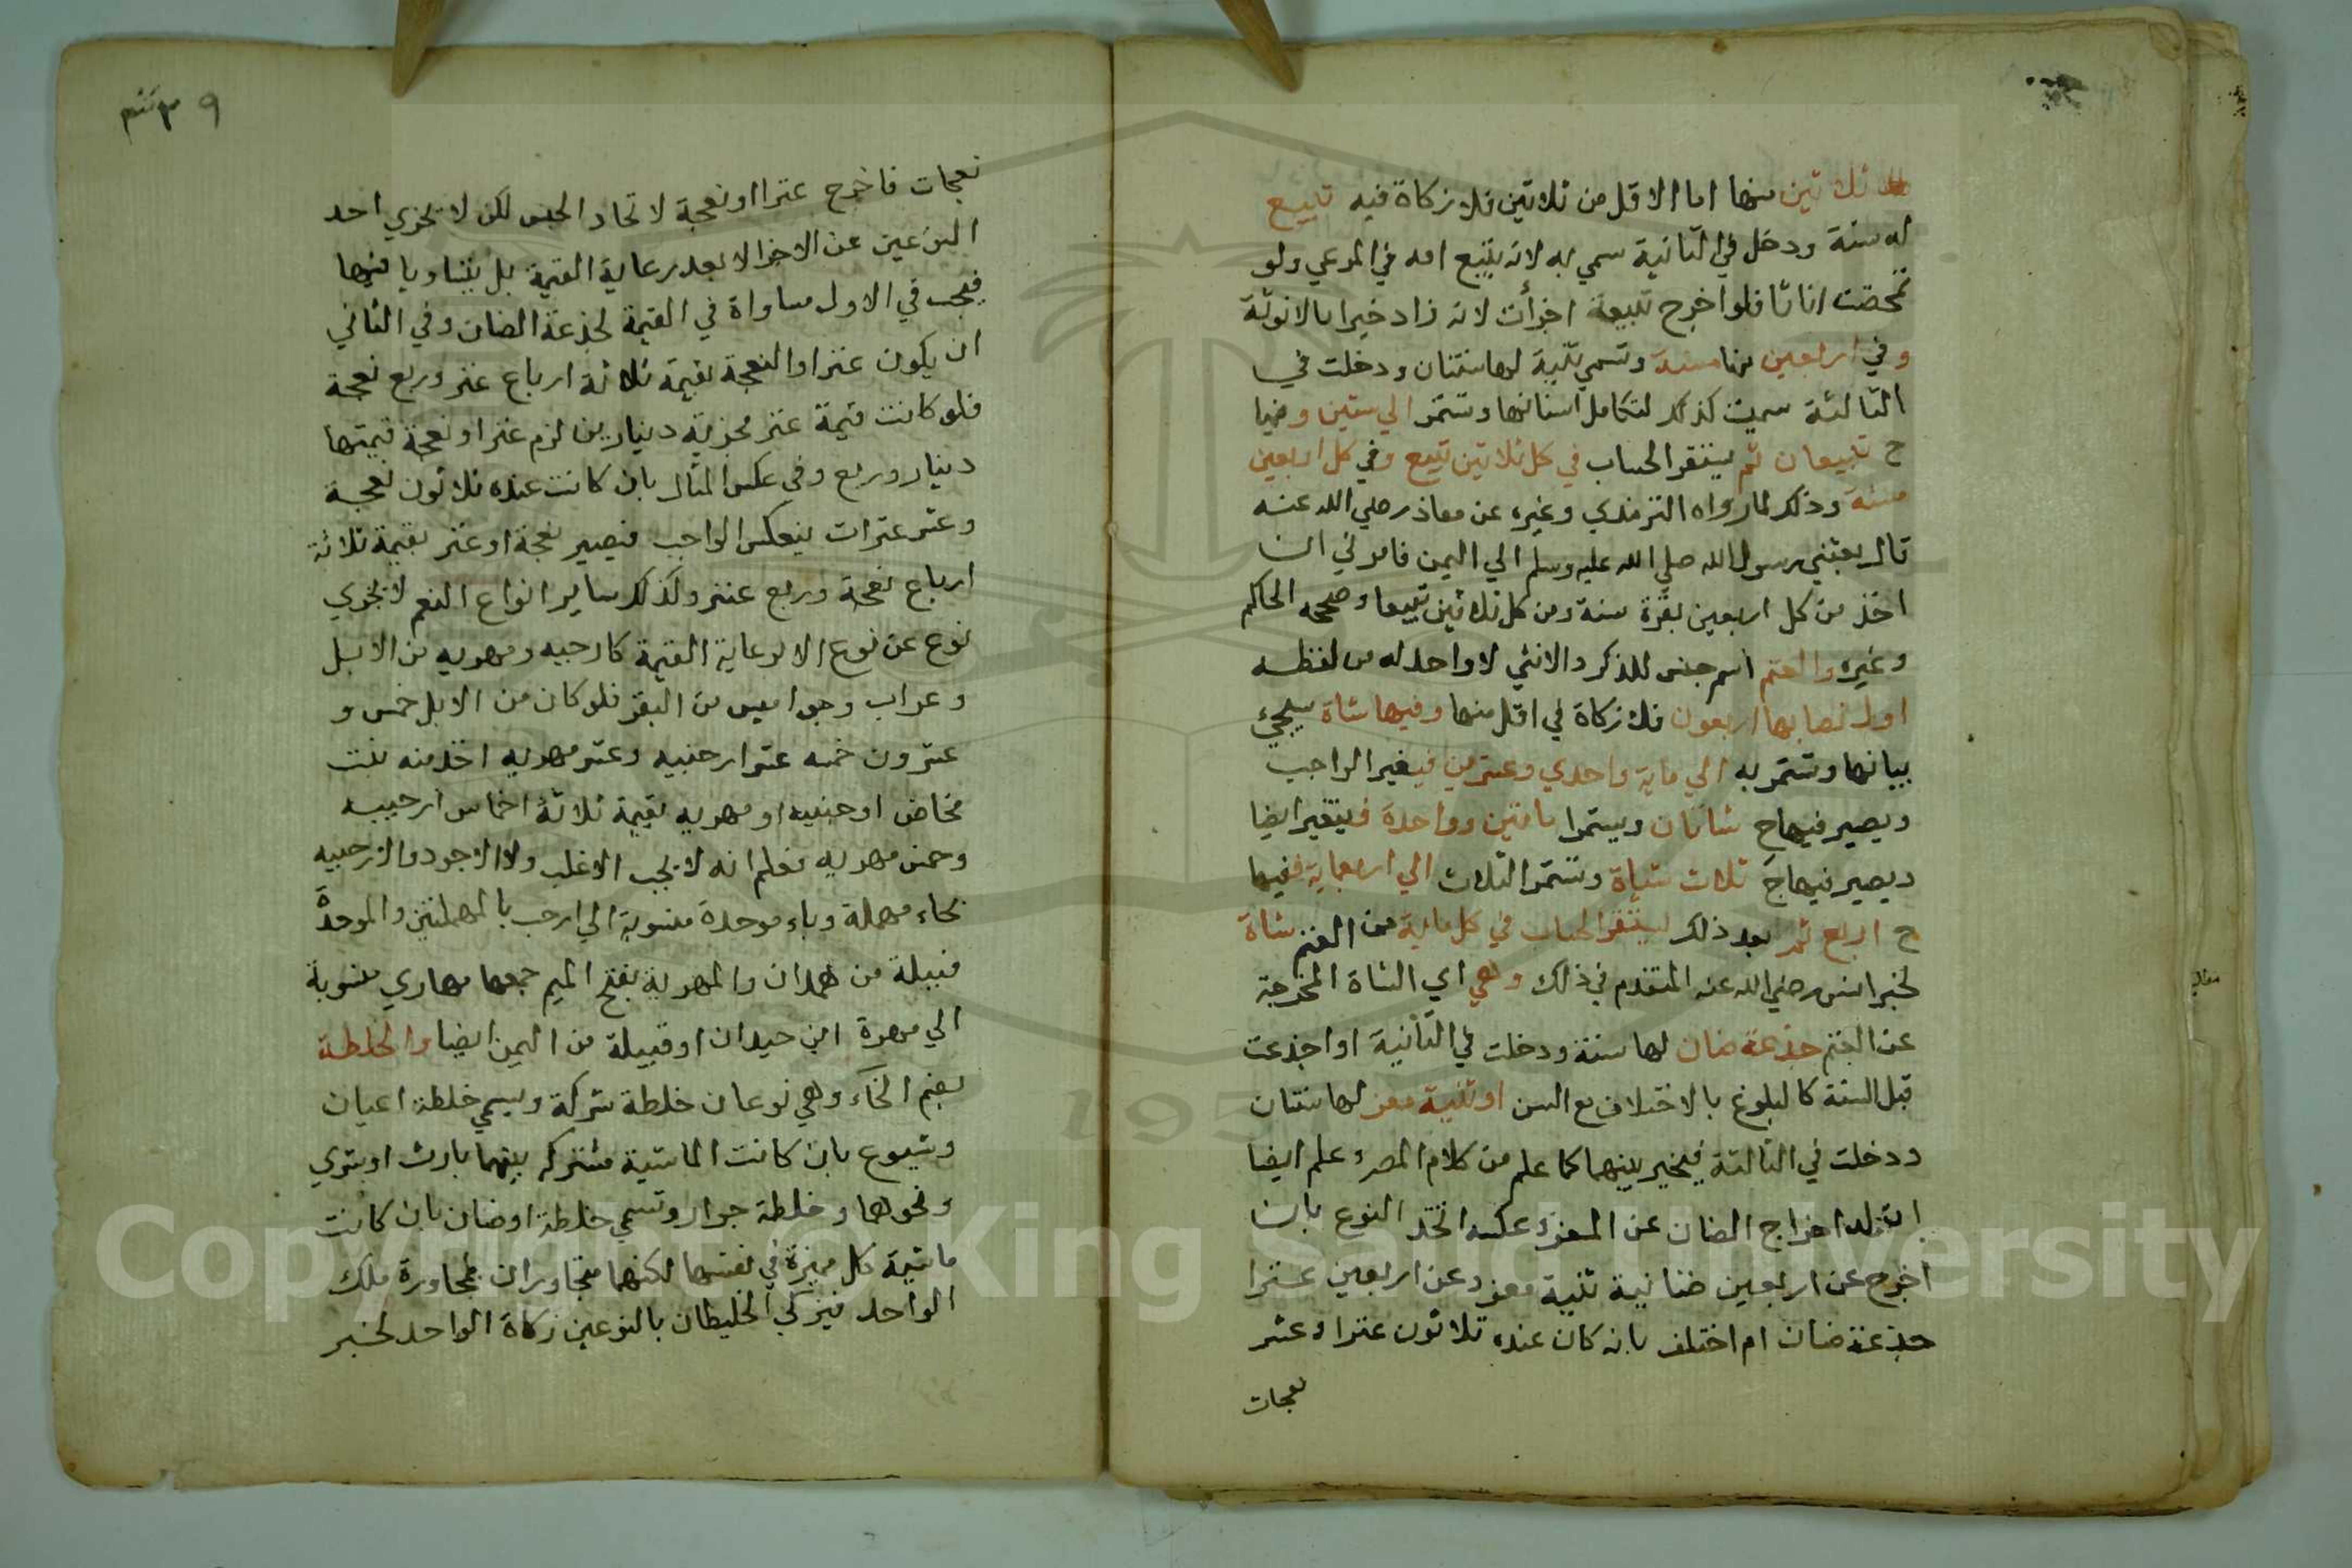 ثلاثين منها اما الاقل من ثلاثين فلا زكاة فيه تبيع
له سنة ودخل في الثانية سمي به لانه يتبع امه في المرعي ولو
تمحضت اناثا فلو اخرج تبيعة اجزأت لانه زاد خيرا بالانوثة
وفي اربعين منها مسنة وتسمي ثنية لها سنتان ودخلت في
الثالثة سميت كذلك لتكامل اسنانها وتستمر الي ستين وفيها
ح تبيعان ثم يستقر الحساب في كل ثلاثين تبيع وفي كل اربعين
مسنة وذلك لما رواه الترمذي وغيره عن معاذ رضي الله عنه
قال بعثني رسول الله صلي الله عليه وسلم الي اليمن فامرني ان
اخذ من كل اربعين بقرة مسنة ومن كل ثلاثين تبيعا وصححه الحاكم
وغيره والغنم اسم جنس للذكر والانثي لا واحد له من لفظه
اول نصابها اربعون فلا زكاة في اقل منها وفيها شاة سيجيء
بيانها وتستمر به الي ماية واحدي وعشرين فيغير الواجب
ويصير فيها ح شاتان ويستمرا مائتين وواحدة فيتغير ايضا
ويصير فيها ح ثلاث شياة وتستمر الثلاث الي اربعماية ففيها
ح اربع ثم بعد ذلك يستقر الحساب في كل ماية من الغنم شاة
لخبر انس رضي الله عنه المتقدم في ذلك وهي اي الشاة المخرجة
عن الغنم جذعة ضان لها سنة ودخلت في الثانية او اجذعت
قبل السنة كالبلوغ بالاختلاف مع السن او ثنية معز لها سنتان
ودخلت في الثالثة فيخير بينهما كما علم من كلام المص وعلم ايضا
ان له اخراج الضان عن المعز وعكسه اتحد النوع بان
اخرج عن اربعين ضانية ثنية معز وعن اربعين عنزا
جذعة ضان ام اختلف بانه كان عنده ثلاثون عنزا وعشر
نعجات
٣٩
نعجات فاخرج عنزا او نعجة لاتحاد الجنس لكن لا يجزي احد
النوعين عن الاخر الا بعد رعاية القيمة بل يتساويا فيها
فيجب في الاول مساواة في القيمة لجذعة الضان وفي الثاني
ان يكون عنزا والنعجة بقيمة ثلاثة ارباع عنز وربع نعجة
فلو كانت قيمة عنز مجزية دينارين لزم عنز او نعجة قيمتها
دينار وربع وفي عكس المثال بان كانت عنده ثلاثون نعجة
وعشر عنزات ينعكس الواجب فيصير نعجة او عنز بقيمة ثلاثة
ارباع نعجة وربع عنز وكذلك ساير انواع النعم لا يجزي
نوع عن نوع الا برعاية القيمة كارحبيه ومهريه من الابل
وعراب وجواميس من البقر فلو كان من الابل خمس و
عشرون خمسه عشر ارحبيه وعشر مهريه اخذ منه بنت
مخاض ارحبيه او مهريه بقيمة ثلاثة اخماس ارحبيه
وخمس مهريه فعلم انه لا يجب الاغلب ولا الاجود والارحبيه
بحاء مهملة وباء موحدة منسوبة الي ارحب بالمهملتين والموحدة
قبيلة من همدان والمهرية بفتح الميم جمعها مهاري منسوبة
الي مهرة ابن حيدان او قبيلة من اليمن ايضا والخلطة
بضم الخاء وهي نوعان خلطة شركة ويسمي خلطة اعيان
وشيوع بان كانت الماشية مشتركه بينهما بارث او بشري
ونحوهما وخلطة جوار وتسمي خلطة اوصاف بان كانت
ماشية كل مميزة في نفسها لكنهما متجاوران مجاورة ملك
الواحد فيزكي الخليطان بالنوعين زكاة الواحد لخبر
Copyright © King Saud University
1957